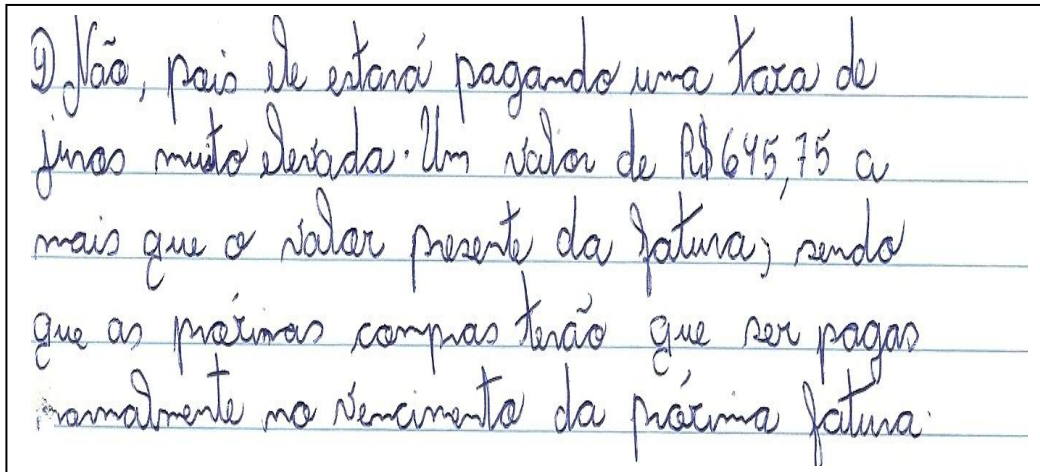 9) Não, pois ele estará pagando uma taxa de
juros muito elevada. Um valor de R$645,75 a
mais que o valor presente da fatura, sendo
que as próximas compras terão que ser pagas
normalmente no vencimento da próxima fatura.